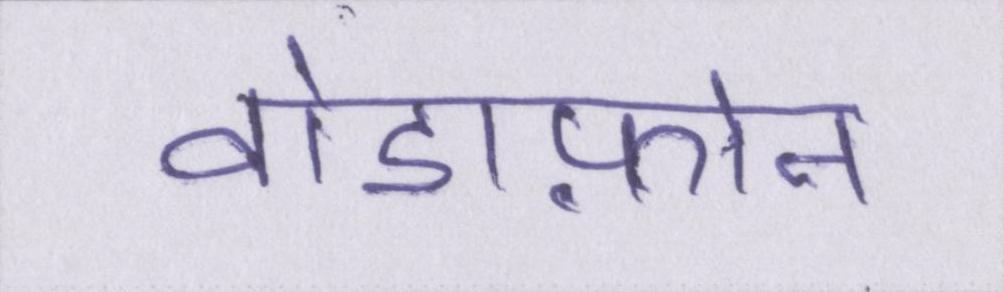 वोडाफ़ोन